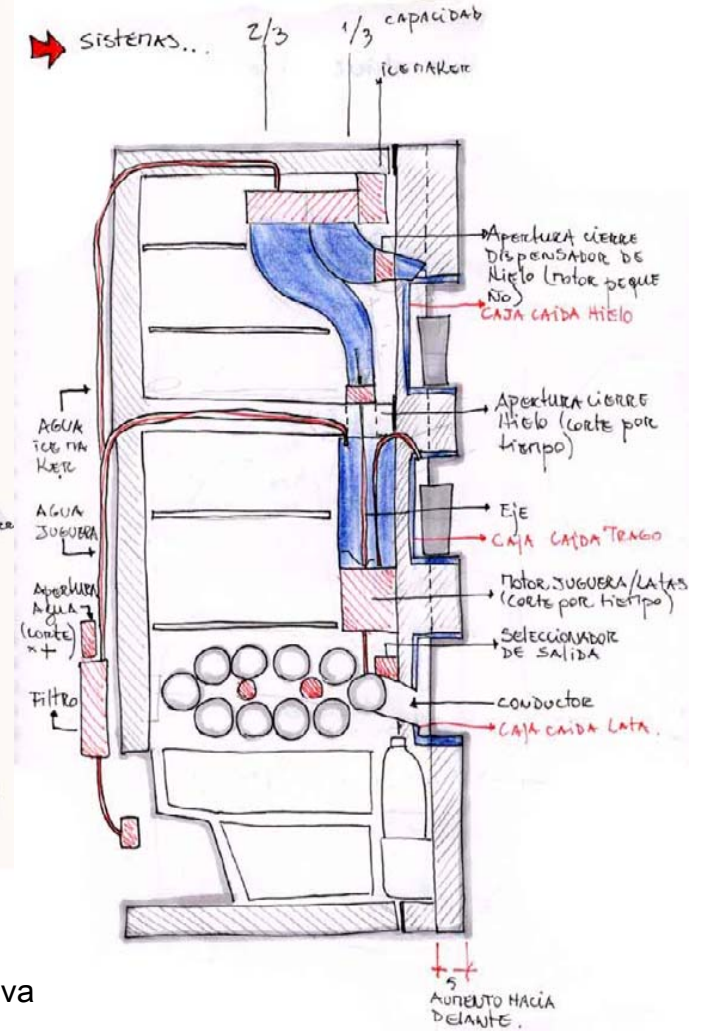 SISTEMAS...
2/3
1/3
CAPACIDAD
ICEMAKER
APERTURA CIERRE
DISPENSADOR DE
HIELO (MOTOR PEQUE
ÑO)
CAJA CAÍDA HIELO
APERTURA CIERRE
HIELO (CORTE POR
TIEMPO)
EJE
CAJA CAÍDA TRAGO
MOTOR JUGUERA/LATAS
(CORTE POR TIEMPO)
SELECCIONADOR
DE SALIDA
CONDUCTOR
CAJA CAÍDA LATA.
AGUA
ICEMA
KER
AGUA
JUGUERA
APERTURA
AGUA
(CORTE)
x t
FILTRO
va
5
AUMENTO HACIA
DELANTE.